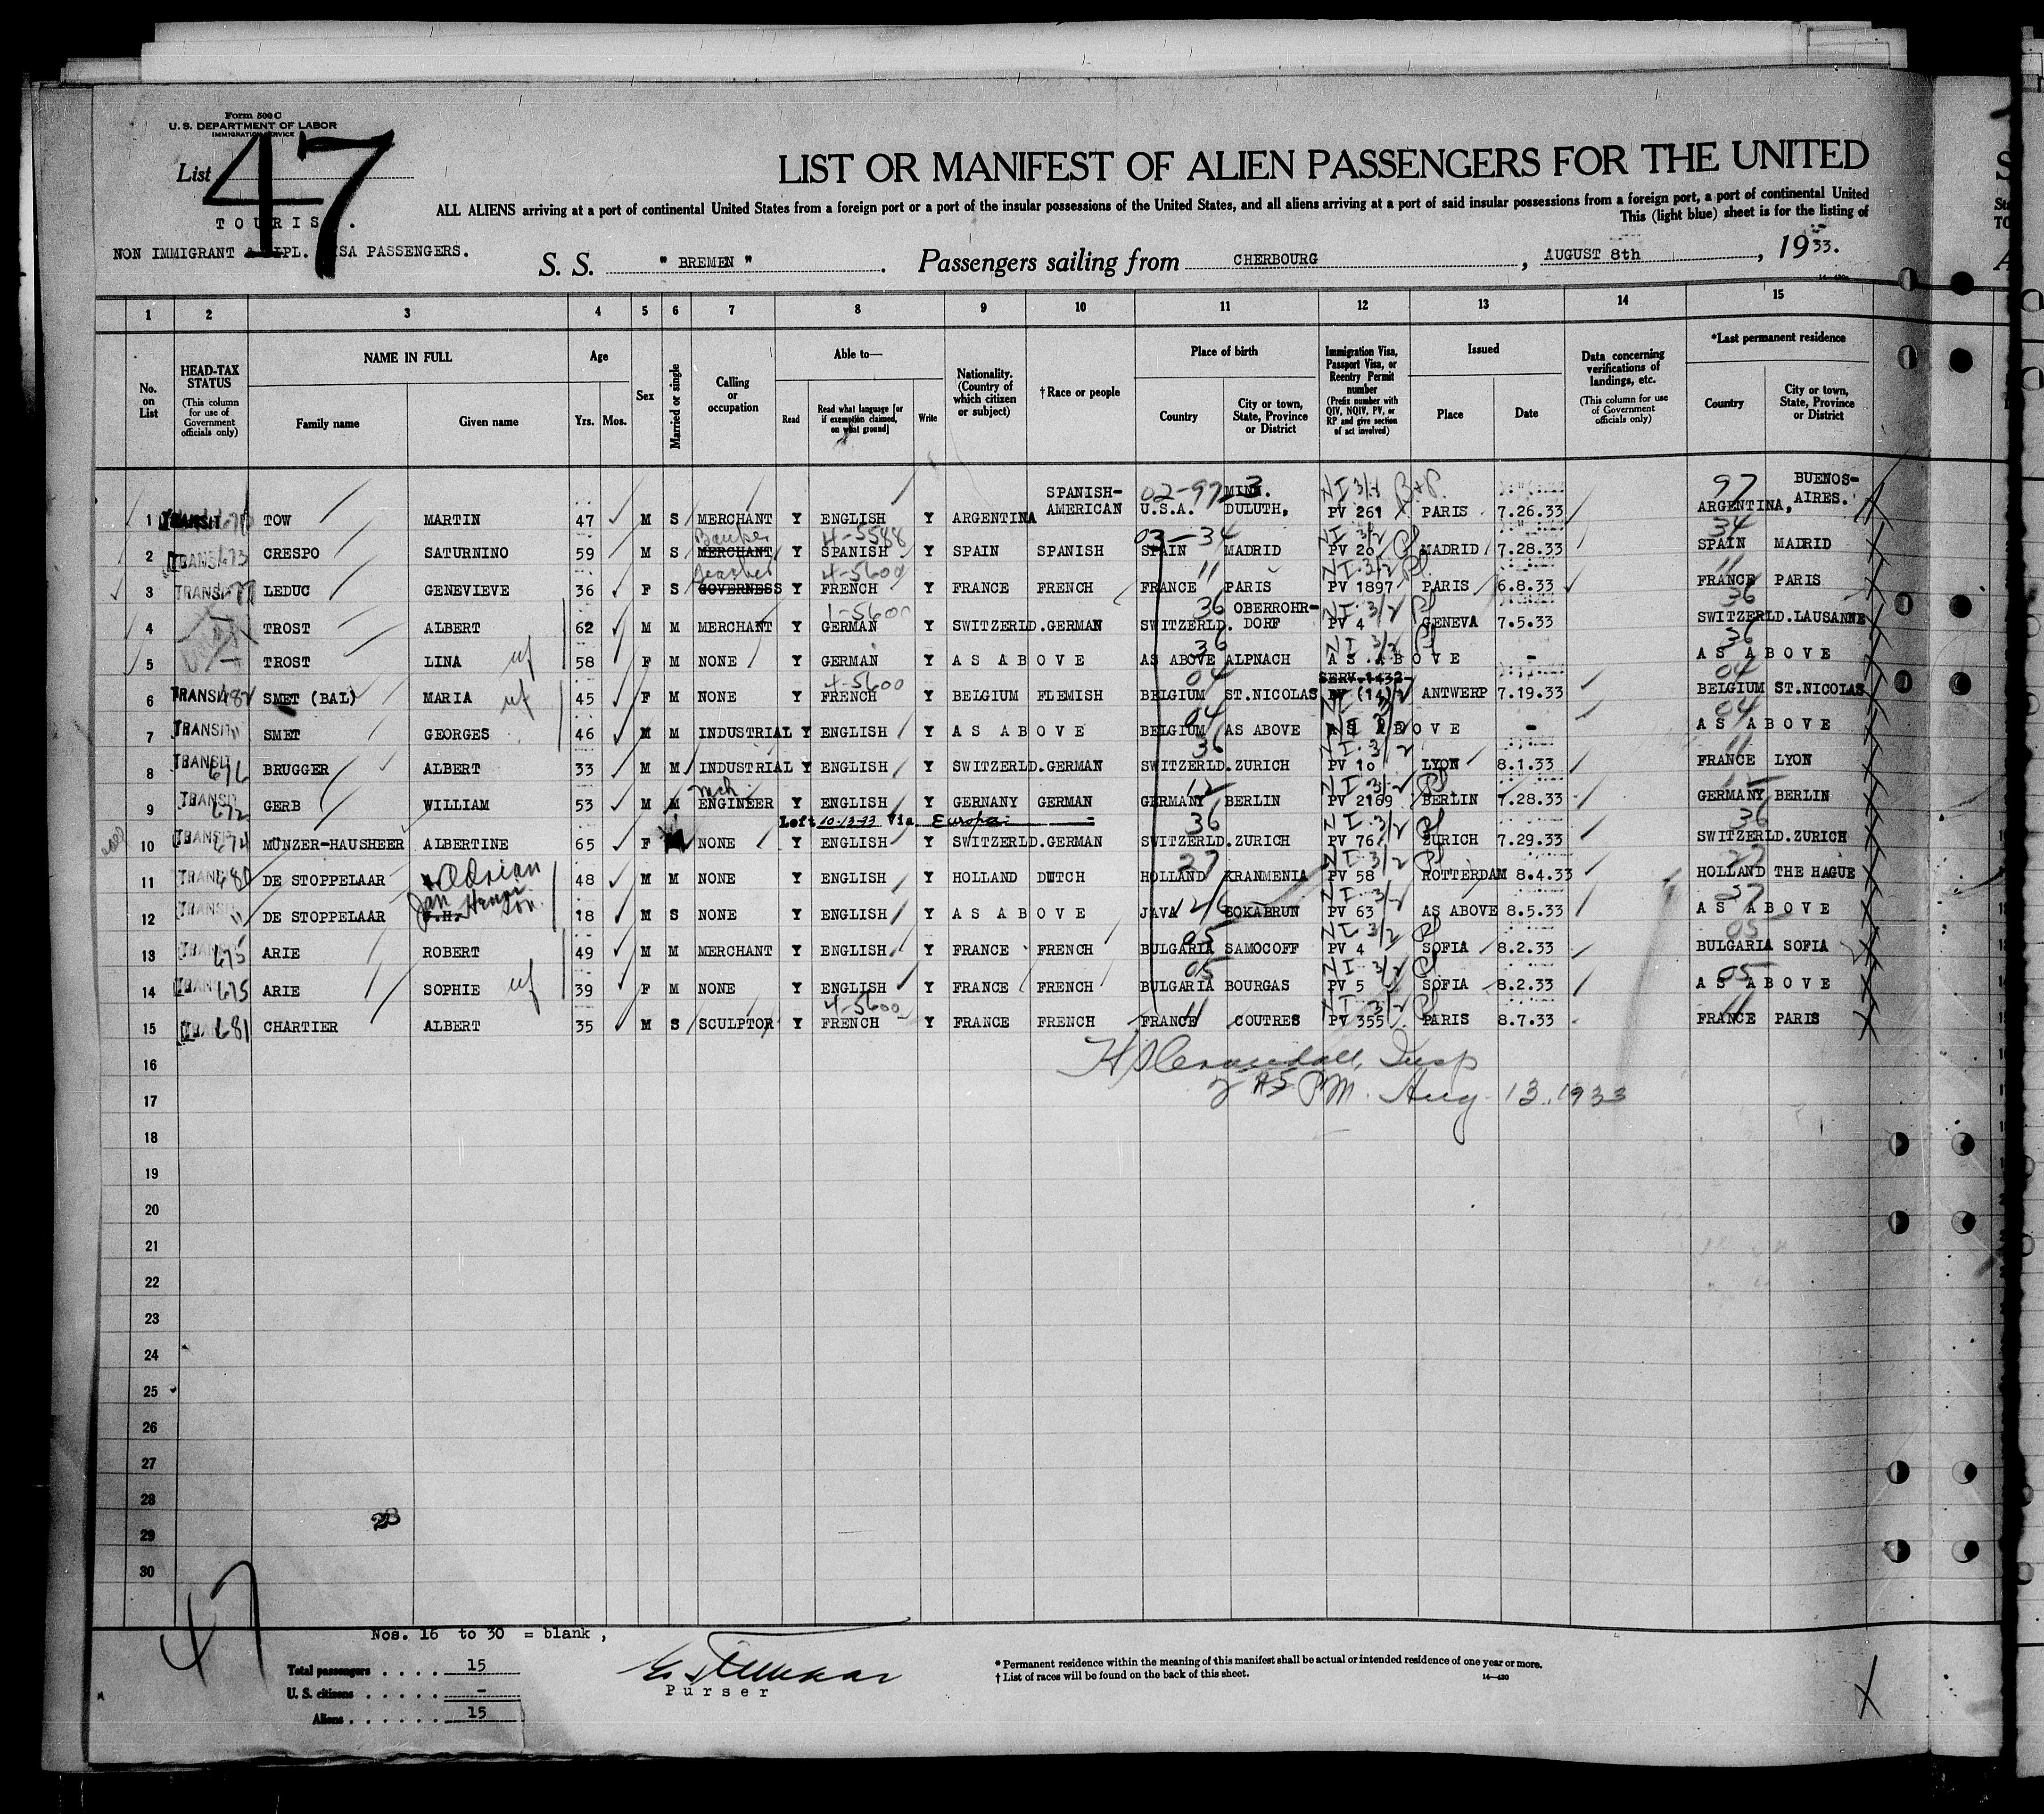 Form 500 C
U. S. DEPARTMENT OF LABOR
IMMIGRATION SERVICE
List 47
LIST OR MANIFEST OF ALIEN PASSENGERS FOR THE UNITED
ALL ALIENS arriving at a port of continental United States from a foreign port or a port of the insular possessions of the United States, and all aliens arriving at a port of said insular possessions from a foreign port, a port of continental United
This (light blue) sheet is for the listing of
NON IMMIGRANT PASSENGERS.
S. S. " BREMEN " . Passengers sailing from CHERBOURG , AUGUST 8th , 1933.
1 2 3 4 5 6 7 8 9 10 11 12 13 14 15
No. on List
HEAD-TAX STATUS (This column for use of Government officials only)
NAME IN FULL Family name Given name
Age Yrs. Mos.
Sex
Married or single
Calling or occupation
Able to— Read Read what language [or if exemption claimed, on what ground] Write
Nationality. (Country of which citizen or subject)
† Race or people
Place of birth Country City or town, State, Province or District
Immigration Visa, Passport Visa, or Reentry Permit number (Prefix number with QIV, NQIV, PV, or RP and give section of act involved)
Issued Place Date
Data concerning verifications of landings, etc. (This column for use of Government officials only)
*Last permanent residence Country City or town, State, Province or District
SPANISH- 02-97 3 MINN. NI 3/1 97 BUENOS-
1 TRANSIT TOW MARTIN 47 M S MERCHANT Y ENGLISH Y ARGENTINA AMERICAN U.S.A. DULUTH, PV 261 PARIS 7.26.33 ARGENTINA, AIRES.
Banker 4-5588 03-34 NI 3/2 34
2 TRANSIT 673 CRESPO SATURNINO 59 M S MERCHANT Y SPANISH Y SPAIN SPANISH SPAIN MADRID PV 20 MADRID 7.28.33 SPAIN MADRID
Teacher 4-5600 11 NI 3/2 11
3 TRANSIT LEDUC GENEVIEVE 36 F S GOVERNESS Y FRENCH Y FRANCE FRENCH FRANCE PARIS PV 1897 PARIS 6.8.33 FRANCE PARIS
1-5600 36 OBERROHR- NI 3/2 36
4 TROST ALBERT 62 M M MERCHANT Y GERMAN Y SWITZERLD. GERMAN SWITZERLD. DORF PV 4 GENEVA 7.5.33 SWITZERLD. LAUSANNE
36 NI 3/2 36
5 TROST LINA wf 58 F M NONE Y GERMAN Y AS ABOVE AS ABOVE ALPNACH AS ABOVE - AS ABOVE
4-5600 04 SERV. 1432 04
6 TRANSIT 682 SMET (BAL) MARIA wf 45 F M NONE Y FRENCH Y BELGIUM FLEMISH BELGIUM ST.NICOLAS PV (14) ANTWERP 7.19.33 BELGIUM ST.NICOLAS
04 NI 3/2 04
7 TRANSIT " SMET GEORGES 46 M M INDUSTRIAL Y ENGLISH Y AS ABOVE BELGIUM AS ABOVE AS ABOVE - AS ABOVE
36 NI 3/2 11
8 TRANSIT 676 BRUGGER ALBERT 33 M M INDUSTRIAL Y ENGLISH Y SWITZERLD. GERMAN SWITZERLD. ZURICH PV 10 LYON 8.1.33 FRANCE LYON
Mch. 12 NI 3/2
9 TRANSIT 672 GERB WILLIAM 53 M M ENGINEER Y ENGLISH Y GERNANY GERMAN GERMANY BERLIN PV 2169 BERLIN 7.28.33 GERMANY BERLIN
Left 10-13-33 Via Europa 36 NI 3/2 36
10 TRANSIT 674 MÜNZER-HAUSHEER ALBERTINE 65 F NONE Y ENGLISH Y SWITZERLD. GERMAN SWITZERLD. ZURICH PV 76 ZURICH 7.29.33 SWITZERLD. ZURICH
27 NI 3/2 27
11 TRANSIT 680 DE STOPPELAAR Adrian 48 M M NONE Y ENGLISH Y HOLLAND DUTCH HOLLAND KRANMENIA PV 58 ROTTERDAM 8.4.33 HOLLAND THE HAGUE
NI 3/2
12 TRANSIT " DE STOPPELAAR Jan Henri son 18 M S NONE Y ENGLISH Y AS ABOVE JAVA SOKABRUN PV 63 AS ABOVE 8.5.33 AS ABOVE
05 NI 3/2 05
13 675 ARIE ROBERT 49 M M MERCHANT Y ENGLISH Y FRANCE FRENCH BULGARIA SAMOCOFF PV 4 SOFIA 8.2.33 BULGARIA SOFIA
05 NI 3/2 05
14 675 ARIE SOPHIE wf 39 F M NONE Y ENGLISH Y FRANCE FRENCH BULGARIA BOURGAS PV 5 SOFIA 8.2.33 AS ABOVE
4-5600 11 NI 3/2 11
15 681 CHARTIER ALBERT 35 M S SCULPTOR Y FRENCH Y FRANCE FRENCH FRANCE COUTRES PV 355 PARIS 8.7.33 FRANCE PARIS
16 Insp
17 PM. Aug 13, 1933
18
19
20
21
22
23
24
25
26
27
28
29
30
47
Nos. 16 to 30 = blank ,
Total passengers . . . . 15
U. S. citizens . . . . . -
Aliens . . . . . . 15
Purser
* Permanent residence within the meaning of this manifest shall be actual or intended residence of one year or more.
† List of races will be found on the back of this sheet.
14—430